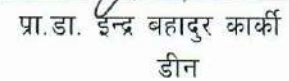 प्रा.डा. ईन्द्र बहादुर कार्की
डीन